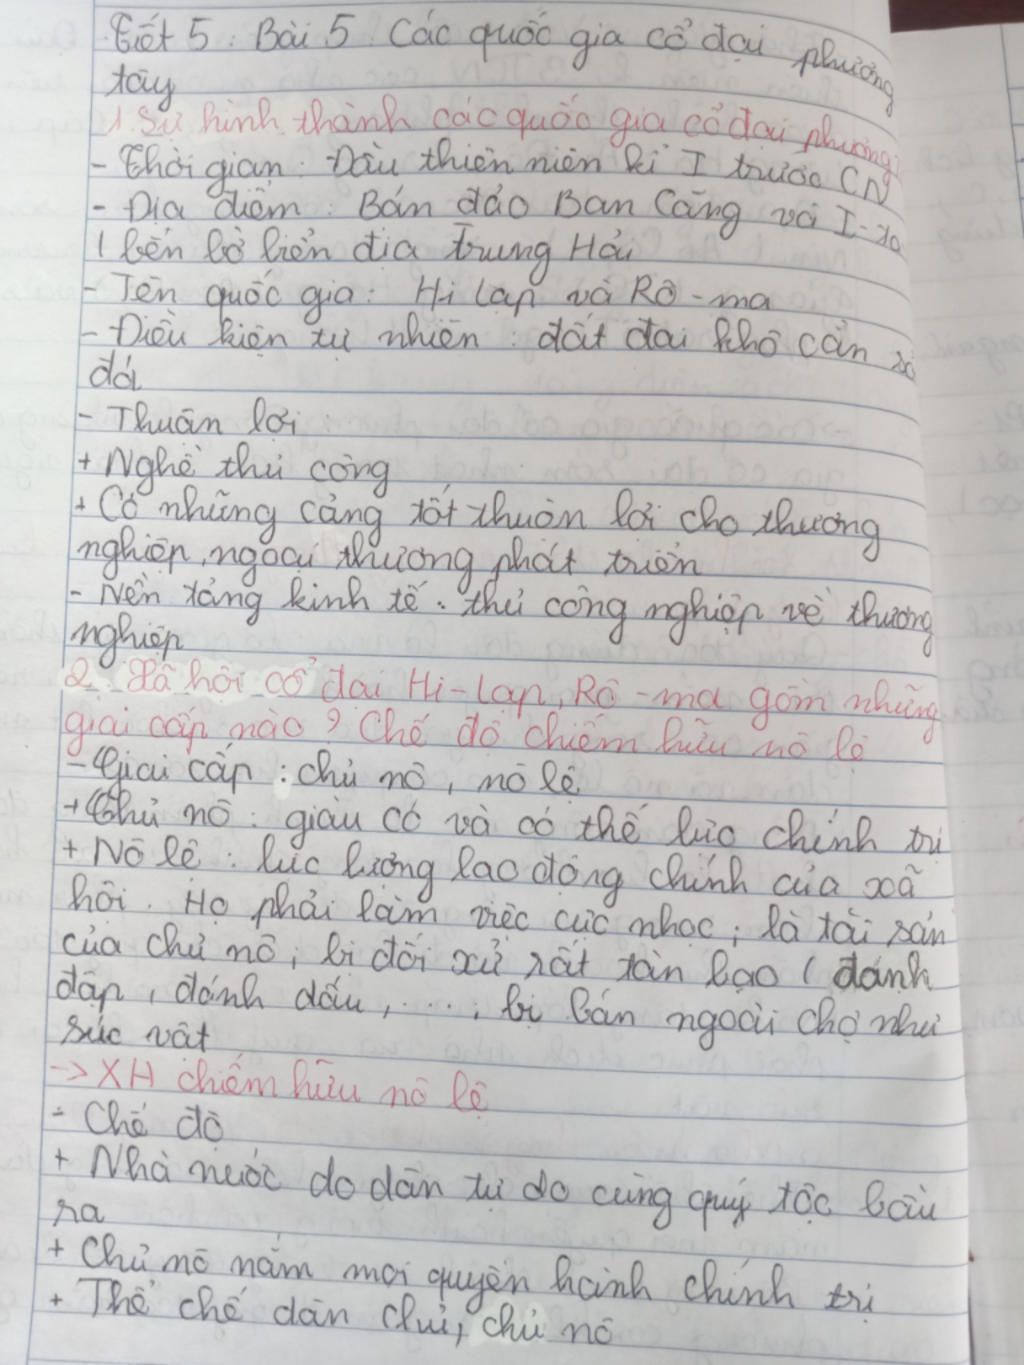 Tiết 5: Bài 5. Các quốc gia cổ đại phương
tây
1. Sự hình thành các quốc gia cổ đại phương
- Thời gian: Đầu thiên niên kỉ I trước CN
- Địa điểm: Bán đảo Ban Căng và I-ta
( bên bờ biển địa Trung Hải
- Tên quốc gia: Hi Lạp và Rô-ma
- Điều kiện tự nhiên: đất đai khô cằn
đá
- Thuận lợi:
+ Nghề thủ công
+ Có những cảng tốt thuận lợi cho thương
nghiệp, ngoại thương phát triển
- Nền tảng kinh tế: thủ công nghiệp về thương
nghiệp
2. Xã hội cổ đại Hi-Lạp, Rô-ma gồm những
giai cấp nào? Chế độ chiếm hữu nô lệ
- Giai cấp: chủ nô, nô lệ
+ Chủ nô: giàu có và có thế lực chính trị
+ Nô lệ: lực lượng lao động chính của xã
hội. Họ phải làm việc cực nhọc; là tài sản
của chủ nô; bị đối xử rất tàn bạo ( đánh
đập, đánh dấu, ....; bị bán ngoài chợ như
súc vật
-> XH chiếm hữu nô lệ
- Chế độ
+ Nhà nước do dân tự do cùng quý tộc bầu
ra
+ Chủ nô nắm mọi quyền hành chính trị
+ Thể chế dân chủ, chủ nô